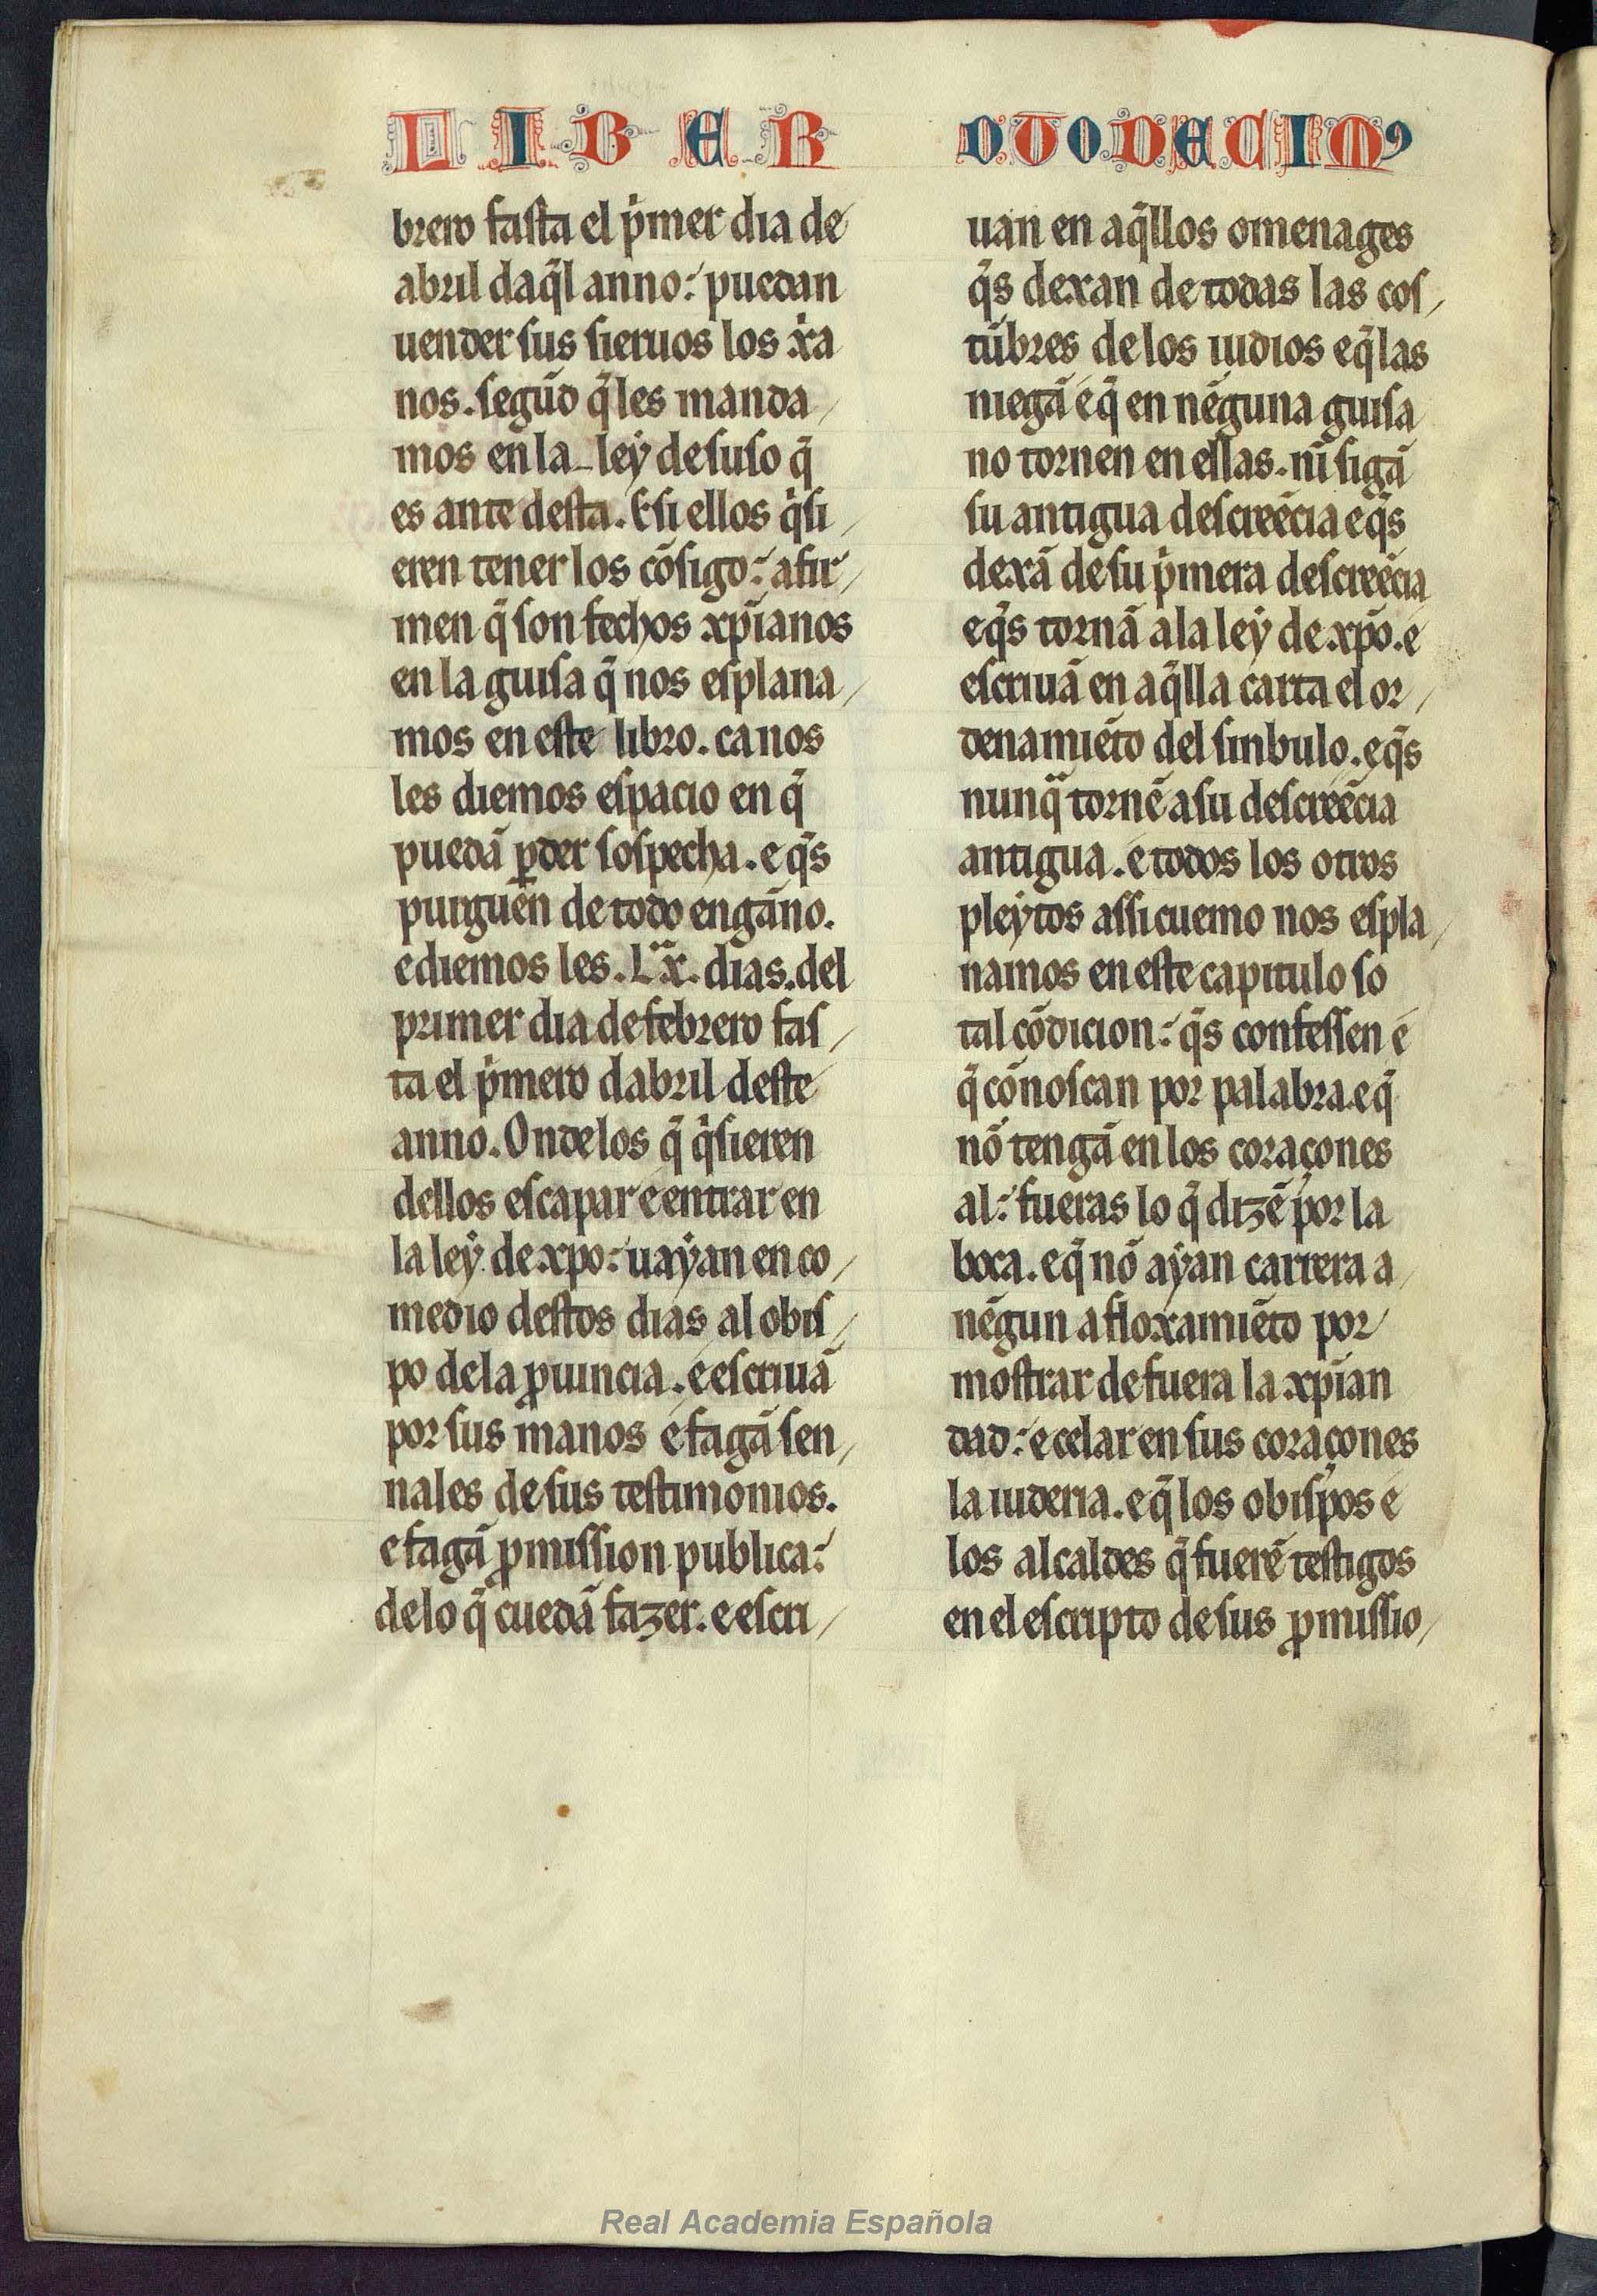 LIBER
DUODECIMꝰ
brero faſta el p̍mer dia de
abril daq̄l anno: puedan
uender ſus ſieruos los x̄a
nos. ſegūd q̄ les manda
mos en la ley de ſuſo q̄
es ante deſta. E ſi ellos q̍ſi
eren tener los cōſigo: afir
men q̄ ſon fechos xp̄ianos
en la guiſa q̄ nos eſplana
mos en eſte libro. ca nos
les diemos eſpacio en q̄
puedā ꝑder ſoſpecha. e q̄s
purguen de todo enganno.
e diemos les .Lx̄. dias. del
primer dia de febrero faſ
ta el p̍mero dabril deſte
anno. Onde los q̄ q̍ſieren
dellos eſcapar e entrar en
la ley de xp̄o: uayan en co
medio deſtos dias al obiſ
po de la ꝓuincia. e eſcriuā
por ſus manos e fagā ſen
nales de ſus teſtimonios.
e fagā ꝓmiſſion publica:
de lo q̄ cuedā fazer. e eſcri
uan en aq̄llos omenages
q̄s dexan de todas las coſ
tūbres de los iudios e q̄ las
niegā e q̄ en nēguna guiſa
no tornen en ellas. nī ſigā
ſu antigua deſcreēcia e q̄s
dexā de ſu p̍mera deſcreēcia
e q̄s tornā a la ley de xp̄o. e
eſcriuā en aq̄lla carta el or
denamiēto del ſinbulo. e q̄s
nunq̄ tornē a ſu deſcreēcia
antigua. e todos los otros
pleytos aſſi cuemo nos eſpla
namos en eſte capitulo ſo
tal cōdicion: q̄s confeſſen e
q̄ cōnoſcan por palabra. e q̄
nō tengā en los coraçones
al: fueras lo q̄ dizē por la
boca. e q̄ nō ayan carrera a
nēgun afloxamiēto por
moſtrar de fuera la xp̄ian
dad: e celar en ſus coraçones
la iuderia. e q̄ los obiſpos e
los alcaldes q̄ fuerē teſtigos
en el eſcripto de ſus ꝓmiſſio
Real Academia Española